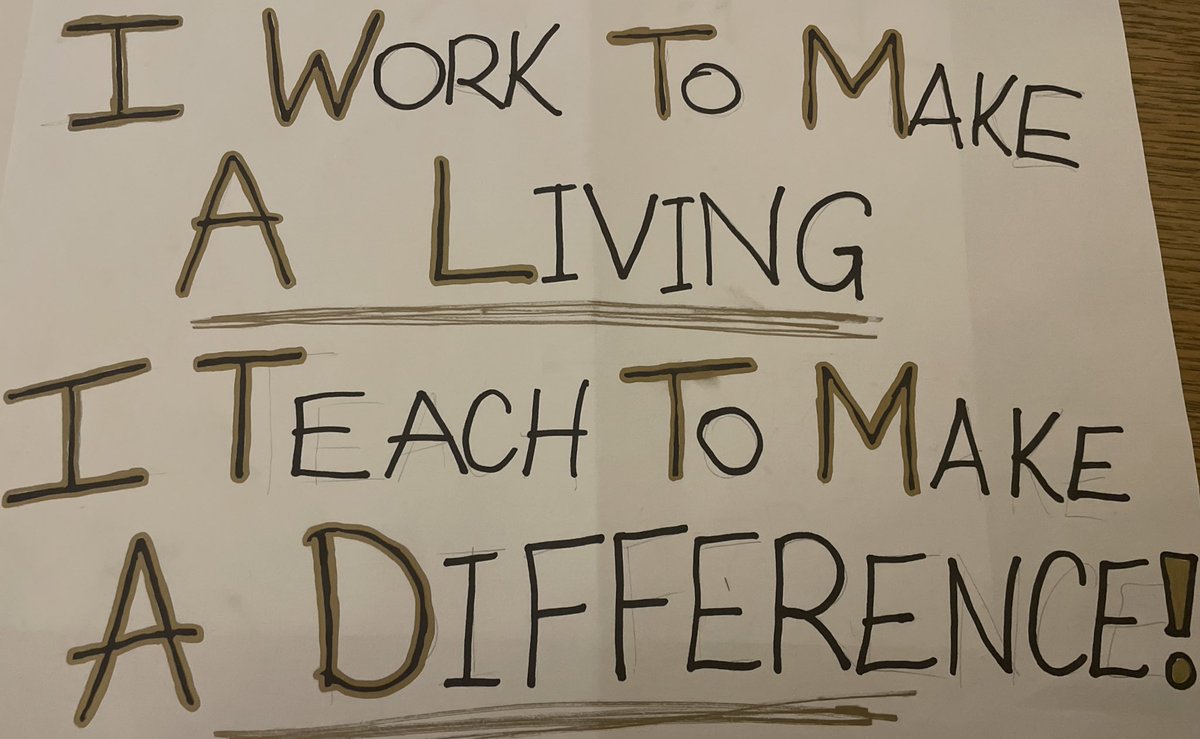 I Work To Make
A Living
I Teach To Make
A Difference!